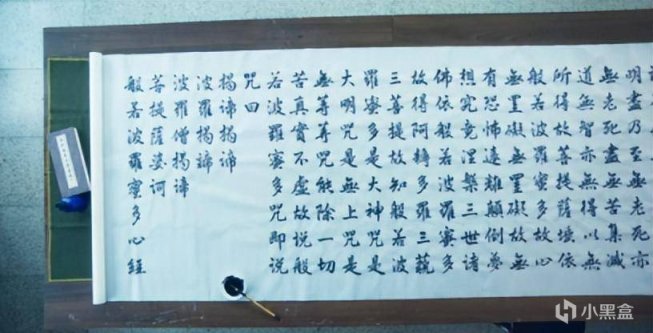 明盡乃至無老死亦
無老死盡無苦集滅
道無智亦無得以無
所得故菩提薩埵依
般若波羅蜜多故心
無罣礙無罣礙故無
有恐怖遠離顛倒夢
想究竟涅槃三世諸
佛依般若波羅蜜多
故得阿耨多羅三藐
三菩提故知般若波
羅蜜多是大神咒是
大明咒是無上咒是
無等等咒能除一切
苦真實不虛故說般
若波羅蜜多咒即說
咒曰
揭諦揭諦
波羅揭諦
波羅僧揭諦
菩提薩婆訶
般若波羅蜜多心經
小黑盒